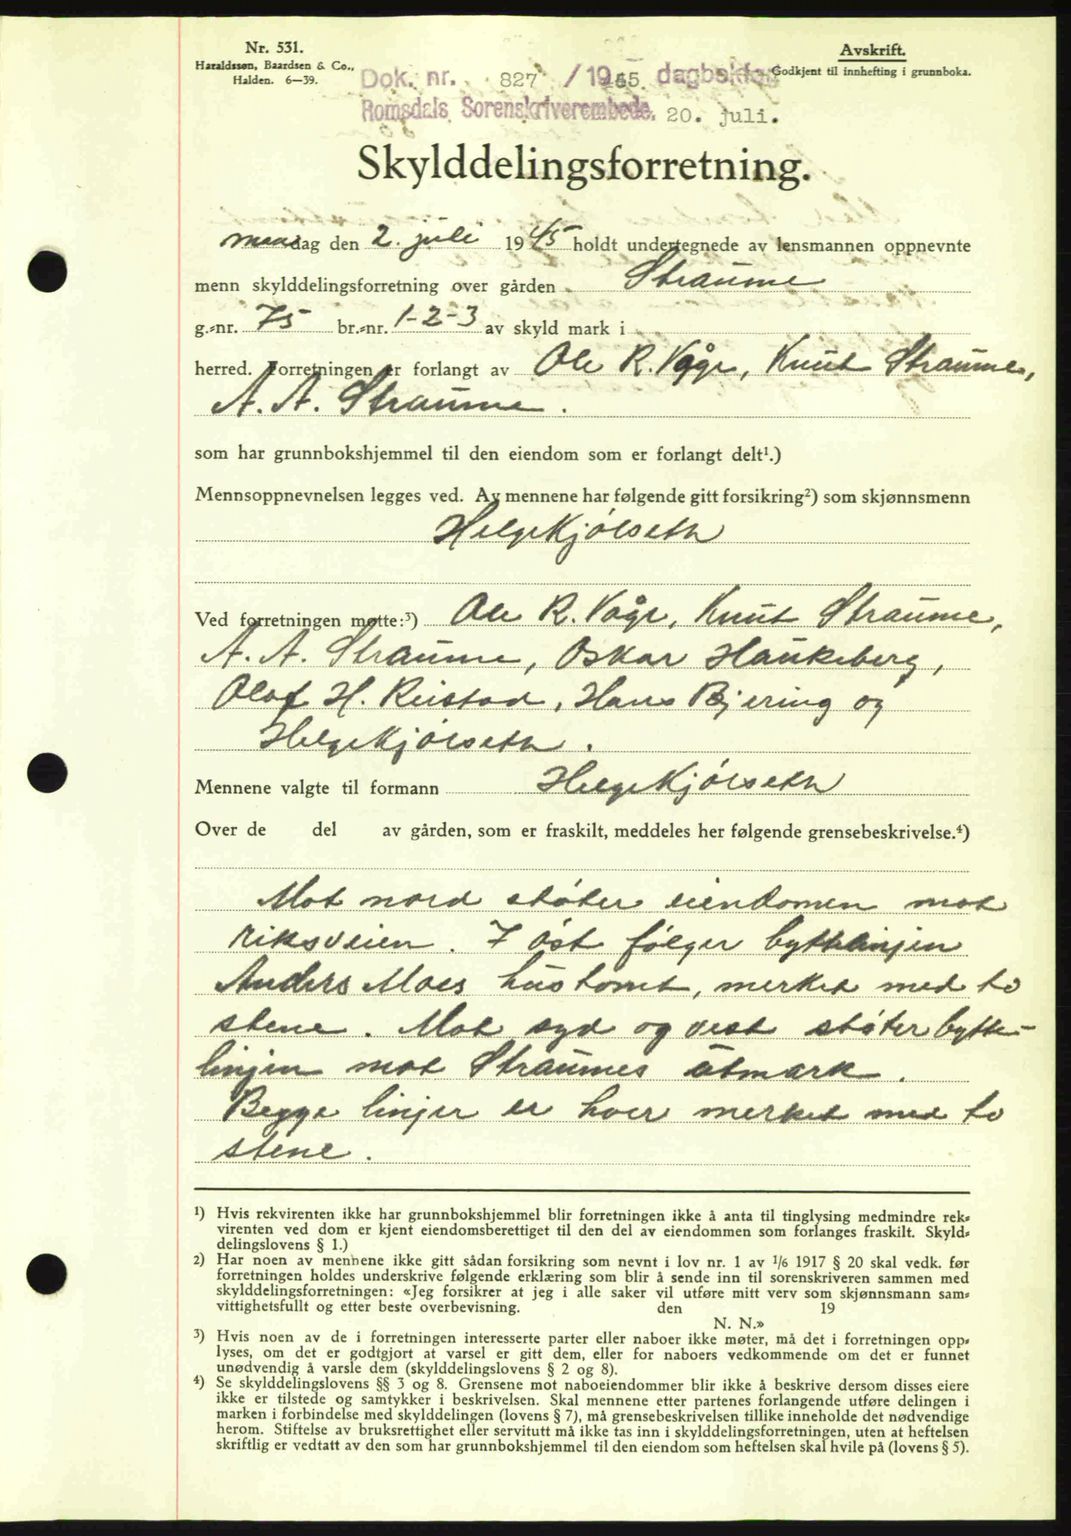 Nr. 531.
Haraldssøn, Baardsen & Co.,
Halden. 6—39.
Avskrift.
Godkjent til innhefting i grunnboka.
Dok. nr. 827 / 1945 dagbok
Romsdals Sorenskriverembede, 20. juli.
Skylddelingsforretning.
mandag den 2. juli 1945 holdt undertegnede av lensmannen oppnevnte
menn skylddelingsforretning over gården Straume
g.-nr. 75 br.-nr. 1-2-3 av skyld mark i
herred. Forretningen er forlangt av Ole R. Våge, Knut Straume,
A. A. Straume.
som har grunnbokshjemmel til den eiendom som er forlangt delt¹.)
Mennsoppnevnelsen legges ved. Av mennene har følgende gitt forsikring²) som skjønnsmenn
Helge Kjølseth
Ved forretningen møtte:³) Ole R. Våge, Knut Straume,
A. A. Straume, Oskar Haukeberg,
Olaf H. Reistad, Hans Bjering og
Helge Kjølseth.
Mennene valgte til formann Helge Kjølseth
Over de del av gården, som er fraskilt, meddeles her følgende grensebeskrivelse.⁴)
Mot nord støter eiendomen mot
riksveien. I øst følger byttelinjen
Anders Moes hustomt, merket med to
stene. Mot syd og vest støter bytte-
linjen mot Straumes utmark.
Begge linjer er hver merket med to
stene.
¹) Hvis rekvirenten ikke har grunnbokshjemmel blir forretningen ikke å anta til tinglysing medmindre rek-
virenten ved dom er kjent eiendomsberettiget til den del av eiendommen som forlanges fraskilt. Skyld-
delingslovens § 1.)
²) Har noen av mennene ikke gitt sådan forsikring som nevnt i lov nr. 1 av ¹/₆ 1917 § 20 skal vedk. før
forretningen holdes underskrive følgende erklæring som blir å sende inn til sorenskriveren sammen med
skylddelingsforretningen: «Jeg forsikrer at jeg i alle saker vil utføre mitt verv som skjønnsmann sam-
vittighetsfullt og etter beste overbevisning. den 19
N. N.»
³) Hvis noen av de i forretningen interesserte parter eller naboer ikke møter, må det i forretningen opp-
lyses, om det er godtgjort at varsel er gitt dem, eller for naboers vedkommende om det er funnet
unødvendig å varsle dem (skylddelingslovens § 2 og 8).
⁴) Se skylddelingslovens §§ 3 og 8. Grensene mot naboeiendommer blir ikke å beskrive dersom disses eiere
ikke er tilstede og samtykker i beskrivelsen. Skal mennene etter partenes forlangende utføre delingen i
marken i forbindelse med skylddelingen (lovens § 7), må grensebeskrivelsen tillike inneholde det nødvendige
herom. Stiftelse av bruksrettighet eller servitutt må ikke tas inn i skylddelingsforretningen, uten at heftelsen
skriftlig er vedtatt av den som har grunnbokshjemmel til den eiendom som heftelsen skal hvile på (lovens § 5).